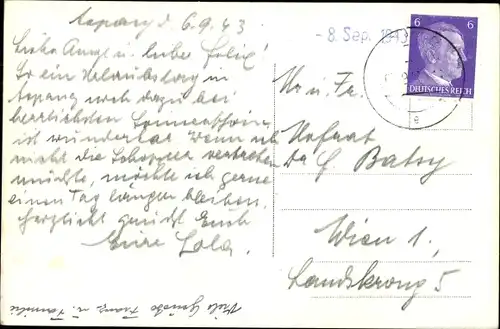 Aspang d. 6.9.43
Liebe Anna u. lieber Felix!
So ein Urlaubstag in
Aspang noch dazu bei
herrlichsten Sonnenschein
ist wunderbar. Wenn ich
nicht die Schopper vertreten
müsste, möchte ich gerne
einen Tag länger bleiben.
Herzlichst grüsst Euch
Eure Lola.
Viele Grüsse Franz u. Familie
- 8. Sep. 1943
6 6
DEUTSCHES REICH
Hr. u. Fr.
Hofrat
Dr.
Wien 1,
Landskrong 5